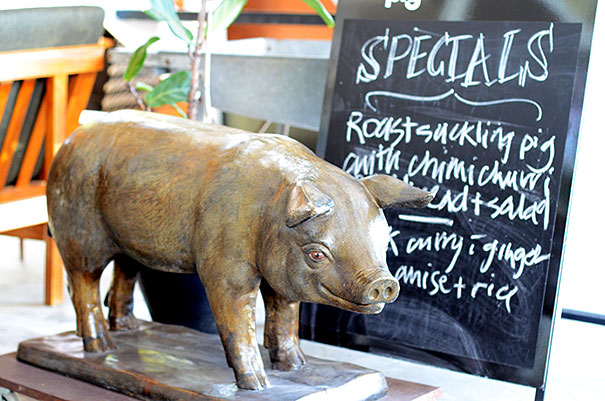 pig
SPECIALS
Roast suckling pig
with chimichurri
+ salad
curry i ginger
anise + rice